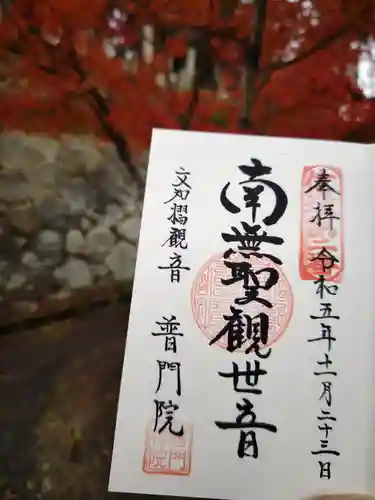 奉拝 令和五年十一月二十三日
南無聖観世音
文知摺観音 普門院